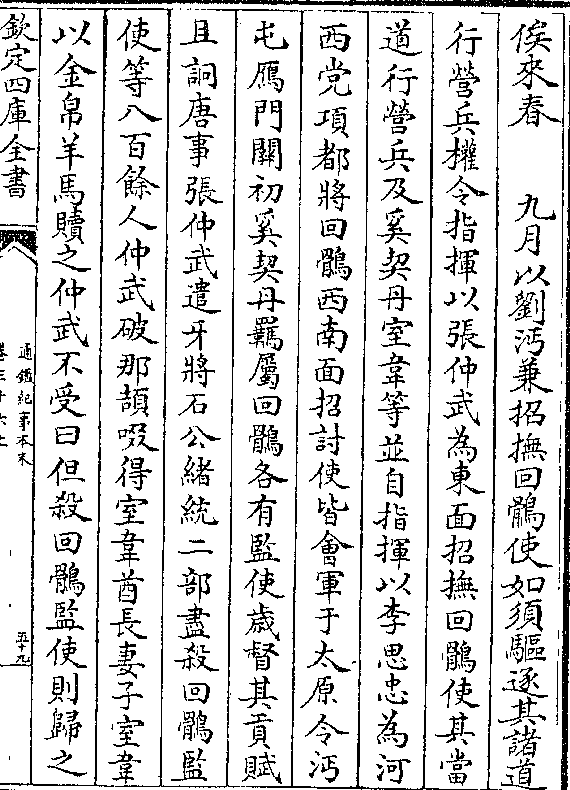 俟來春　九月以劉沔兼招撫回鶻使如須驅逐其諸道
行營兵權令指揮以張仲武為東面招撫回鶻使其當
道行營兵及奚契丹室韋等並自指揮以李思忠為河
西党項都將回鶻西南面招討使皆會軍于太原令沔
屯鴈門關初奚契丹羈屬回鶻各有監使歲督其貢賦
且詗唐事張仲武遣牙將石公緒統二部盡殺回鶻監
使等八百餘人仲武破那頡啜得室韋酋長妻子室韋
以金帛羊馬贖之仲武不受曰但殺回鶻監使則歸之
欽定四庫全書
通鑑紀事本末
卷三十六上
五十九